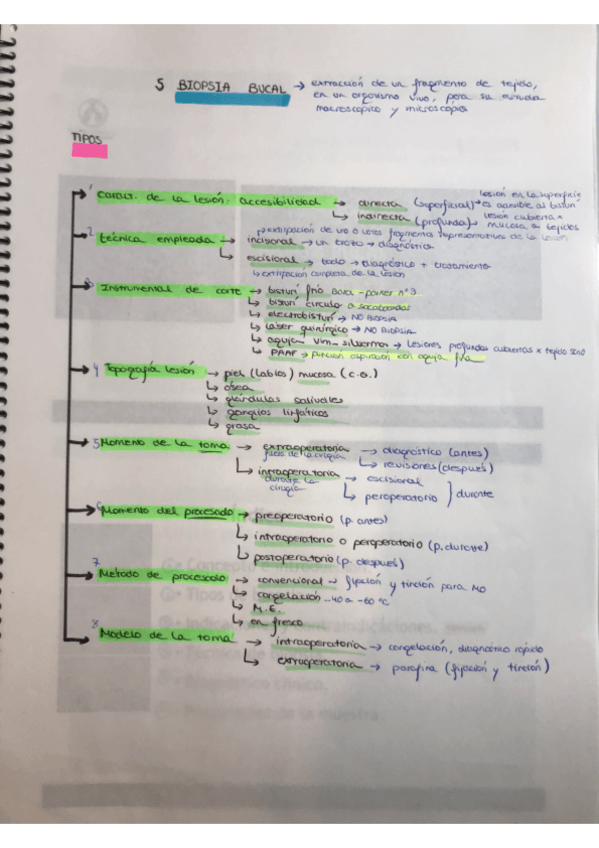 5 BIOPSIA BUCAL → extracción de un fragmento de tejido,
en un organismo vivo, para su estudio
macroscópico y microscópico
TIPOS
1 Caract. de la lesión: accesibilidad → directa (superficial) → lesión en la superficie es accesible al bisturí
↳ indirecta (profunda) ↳ lesión cubierta x mucosa o tejidos
2 técnica empleada → incisional → un trozo → diagnóstico
↳ extirpación de uno o varios fragmentos representativos de la lesión
↳ escisional → todo → diagnóstico + tratamiento
↳ extirpación completa de la lesión
3 Instrumental de corte → bisturí frío Bard-parker nº3
↳ bisturí circulo o sacabocados
↳ electrobisturí → NO BIOPSIA
↳ láser quirúrgico → NO BIOPSIA
↳ agujas Vim-silverman → Lesiones profundas cubiertas x tejido sano
↳ PAAF → punción aspiración con aguja fina
4 Topografía lesión → piel (labios) mucosa (c.o.)
↳ ósea
↳ glándulas salivales
↳ ganglios linfáticos
↳ grasa
5 Momento de la toma → extraoperatoria → diagnóstico (antes)
fuera de la cirugía ↳ revisiones (después)
↳ intraoperatoria → escisional
durante la cirugía ↳ peroperatorio } durante
6 Momento del procesado → preoperatorio (p. antes)
↳ intraoperatorio o peroperatorio (p. durante)
↳ postoperatorio (p. después)
7 Método de procesado → convencional → fijación y tinción para MO
↳ congelación -40 a -60 ºC
↳ M.E.
↳ en fresco
8 Modelo de la toma: → intraoperatoria → congelación, diagnóstico rápido
↳ extraoperatoria → parafina (fijación y tinción)